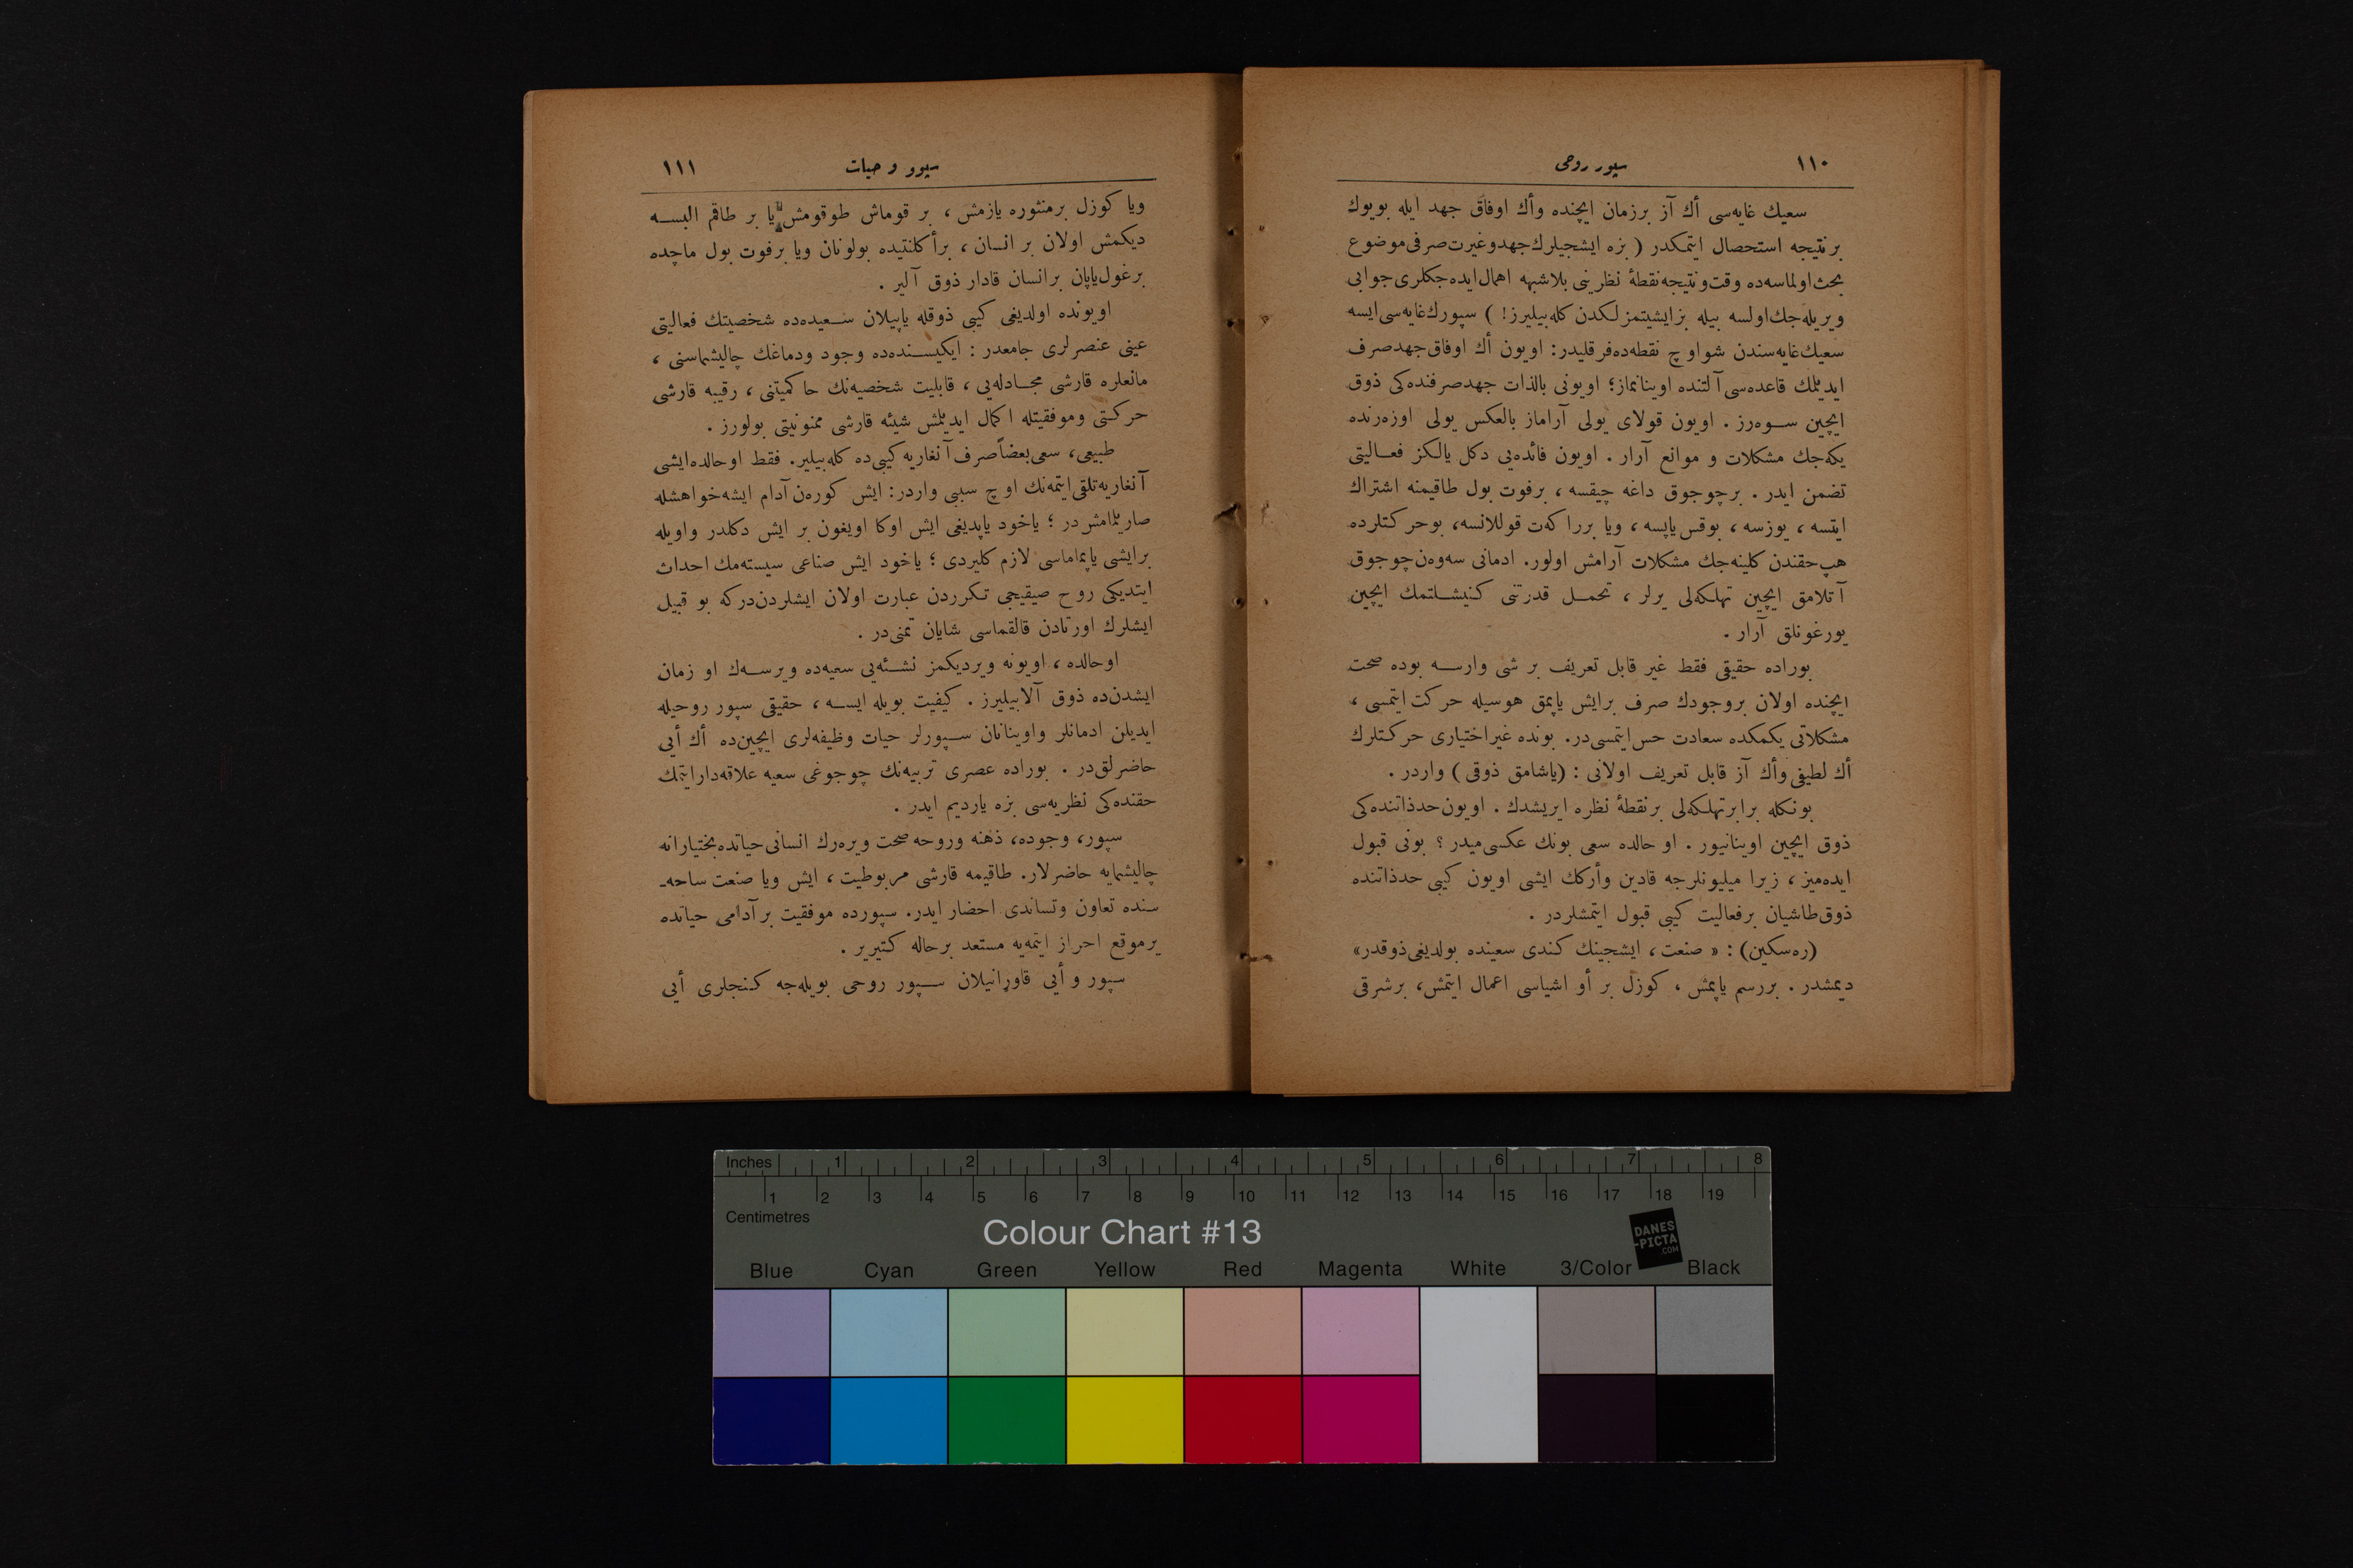 ١١٠
سپور روحی
سعيك غايه‌سی أك آز برزمان ايچنده وأك اوفاق جهد ايله بويوك
برنتيجه استحصال ايتمكدر ( بزه ايشجيلرك جهد وغيرت صرفی موضوع
بحث اولماسه‌ده وقت و نتيجه نقطهٔ نظرينی بلاشبهه اهمال ايده‌جكلری جوابی
ويريله‌جك اولسه بيله بزايشيتمزلكدن كله‌بيليرز! ) سپورك غايه‌سی ايسه
سعيك غايه‌سندن شواوچ نقطه‌ده فرقليدر: اويون أك اوفاق جهد صرف
ايديلمك قاعده‌سی آلتنده اوينانماز؛ اويونی بالذات جهد صرفنده‌كی ذوق
ايچين سـوه‌رز . اويون قولای يولی آراماز بالعكس يولی اوزه‌رنده
يكه‌جك مشكلات و موانع آرار . اويون فائده‌يی دكل يالكز فعـاليتی
تضمن ايدر . برچوجوق داغه چيقسه ، برفوت بول طاقيمنه اشتراك
ايتسه ، يوزسه ، بوقس ياپسه ، ويا برراكه‌ت قوللانسه، بوحركتلرده
هپ حقندن كلينه‌جك مشكلات آرامش اولور. ادمانی سه‌وه‌ن چوجوق
آتلامق ايچين تهلكه‌لی يرلر ، تحمـل قدرتنی كنيشـلتمك ايچين
يورغونلق آرار .
بوراده حقيقی فقط غير قابل تعريف بر شی وارسـه بوده صحت
ايچنده اولان بروجودك صرف برايش ياپمق هوسيله حركت ايتمسی ،
مشكلاتی يكمكده سعادت حس ايتمسی‌در. بونده غيراختياری حركتلرك
أك لطيفی وأك آز قابل تعريف اولانی : (ياشامق ذوقی ) واردر .
بونكله برابر تهلكه‌لی برنقطهٔ نظره ايريشدك . اويون حدذاتنده‌كی
ذوق ايچين اوينانيور . او حالده سعی بونك عكسی‌ميدر ؟ بونی قبول
ايده‌ميز ، زيرا ميليونلرجه قادين وأركك ايشی اويون كيبی حدذاتنده
ذوق طاشيان برفعاليت كيبی قبول ايتمشلردر .
(ره‌سكين) : « صنعت ، ايشجينك كندی سعينده بولديغی ذوقدر»
ديمشدر . بررسم ياپمش ، كوزل بر أو اشياسی اعمال ايتمش، برشرقی
سپور و حيات
١١١
ويا كوزل برمنثوره يازمش ، بر قوماش طوقومش يا بر طاقم البسـه
ديكمش اولان بر انسان ، برأكلنتيده بولونان ويا برفوت بول ماچده
برغول ياپان برانسان قادار ذوق آلير .
اويونده اولديغی كيبی ذوقله ياپيلان سـعيده‌ده شخصيتك فعاليتی
عينی عنصرلری جامعدر : ايكيسـنده‌ده وجود ودماغك چاليشماسنی ،
مانعلره قارشی مجـادله‌يی ، قابليت شخصيه‌نك حاكميتنی ، رقيبه قارشی
حركتی وموفقيتله اكمال ايديلمش شيئه قارشی ممنونيتی بولورز .
طبيعی، سعی بعضاً صرف آنغاريه كيبی‌ده كله‌بيلير. فقط اوحالده ايشی
آنغاريه تلقی ايتمه‌نك اوچ سببی واردر: ايش كوره‌ن آدام ايشه خواهشله
صاريلمامش در ؛ ياخود ياپديغی ايش اوكا اويغون بر ايش دكلدر واويله
برايشی ياپماماسی لازم كليردی ؛ ياخود ايش صناعی سيسته‌مك احداث
ايتديكی روح صيقيجی تكرردن عبارت اولان ايشلردن‌دركه بو قبيل
ايشلرك اورتادن قالقماسی شايان تمنی‌در .
اوحالده ، اويونه ويرديكمز نشـئه‌يی سعيه‌ده ويرسـه‌ك او زمان
ايشدن‌ده ذوق آلابيليرز . كيفيت بويله ايسـه ، حقيقی سپور روحيله
ايديلن ادمانلر واوينانان سـپورلر حيات وظيفه‌لری ايچين‌ده أك أيی
حاضرلق‌در . بوراده عصری تربيه‌نك چوجوغی سعيه علاقه‌دار ايتمك
حقنده‌كی نظريه‌سی بزه يارديم ايدر .
سپور، وجوده، ذهنه وروحه صحت ويره‌رك انسانی حياتده بختيارانه
چاليشمايه حاضرلار. طاقيمه قارشی مربوطيت ، ايش ويا صنعت ساحه‌ـ
سنده تعاون وتساندی احضار ايدر. سپورده موفقيت بر آدامی حياتده
برموقع احراز ايتمه‌يه مستعد برحاله كتيرير .
سپور و أيی قاورانيلان سـپور روحی بويله‌جه كنجلری أيی
Inches 1 2 3 4 5 6 7 8
1 2 3 4 5 6 7 8 9 10 11 12 13 14 15 16 17 18 19
Centimetres
Colour Chart #13
DANES
-PICTA
.COM
Blue Cyan Green Yellow Red Magenta White 3/Color Black